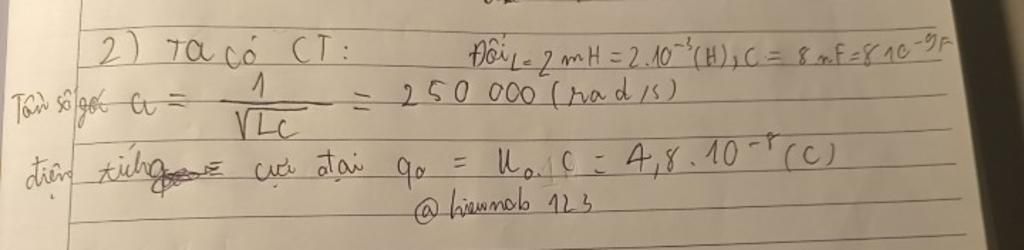 2) Ta có CT: Đổi L = 2 mH = 2.10⁻³(H), C = 8 nF = 8 10⁻⁹F
Tần số góc ω = 1/√LC = 250 000 (rad/s)
điện tích cực đại q₀ = U₀.C = 4,8.10⁻⁸(C)
@hieumob 123